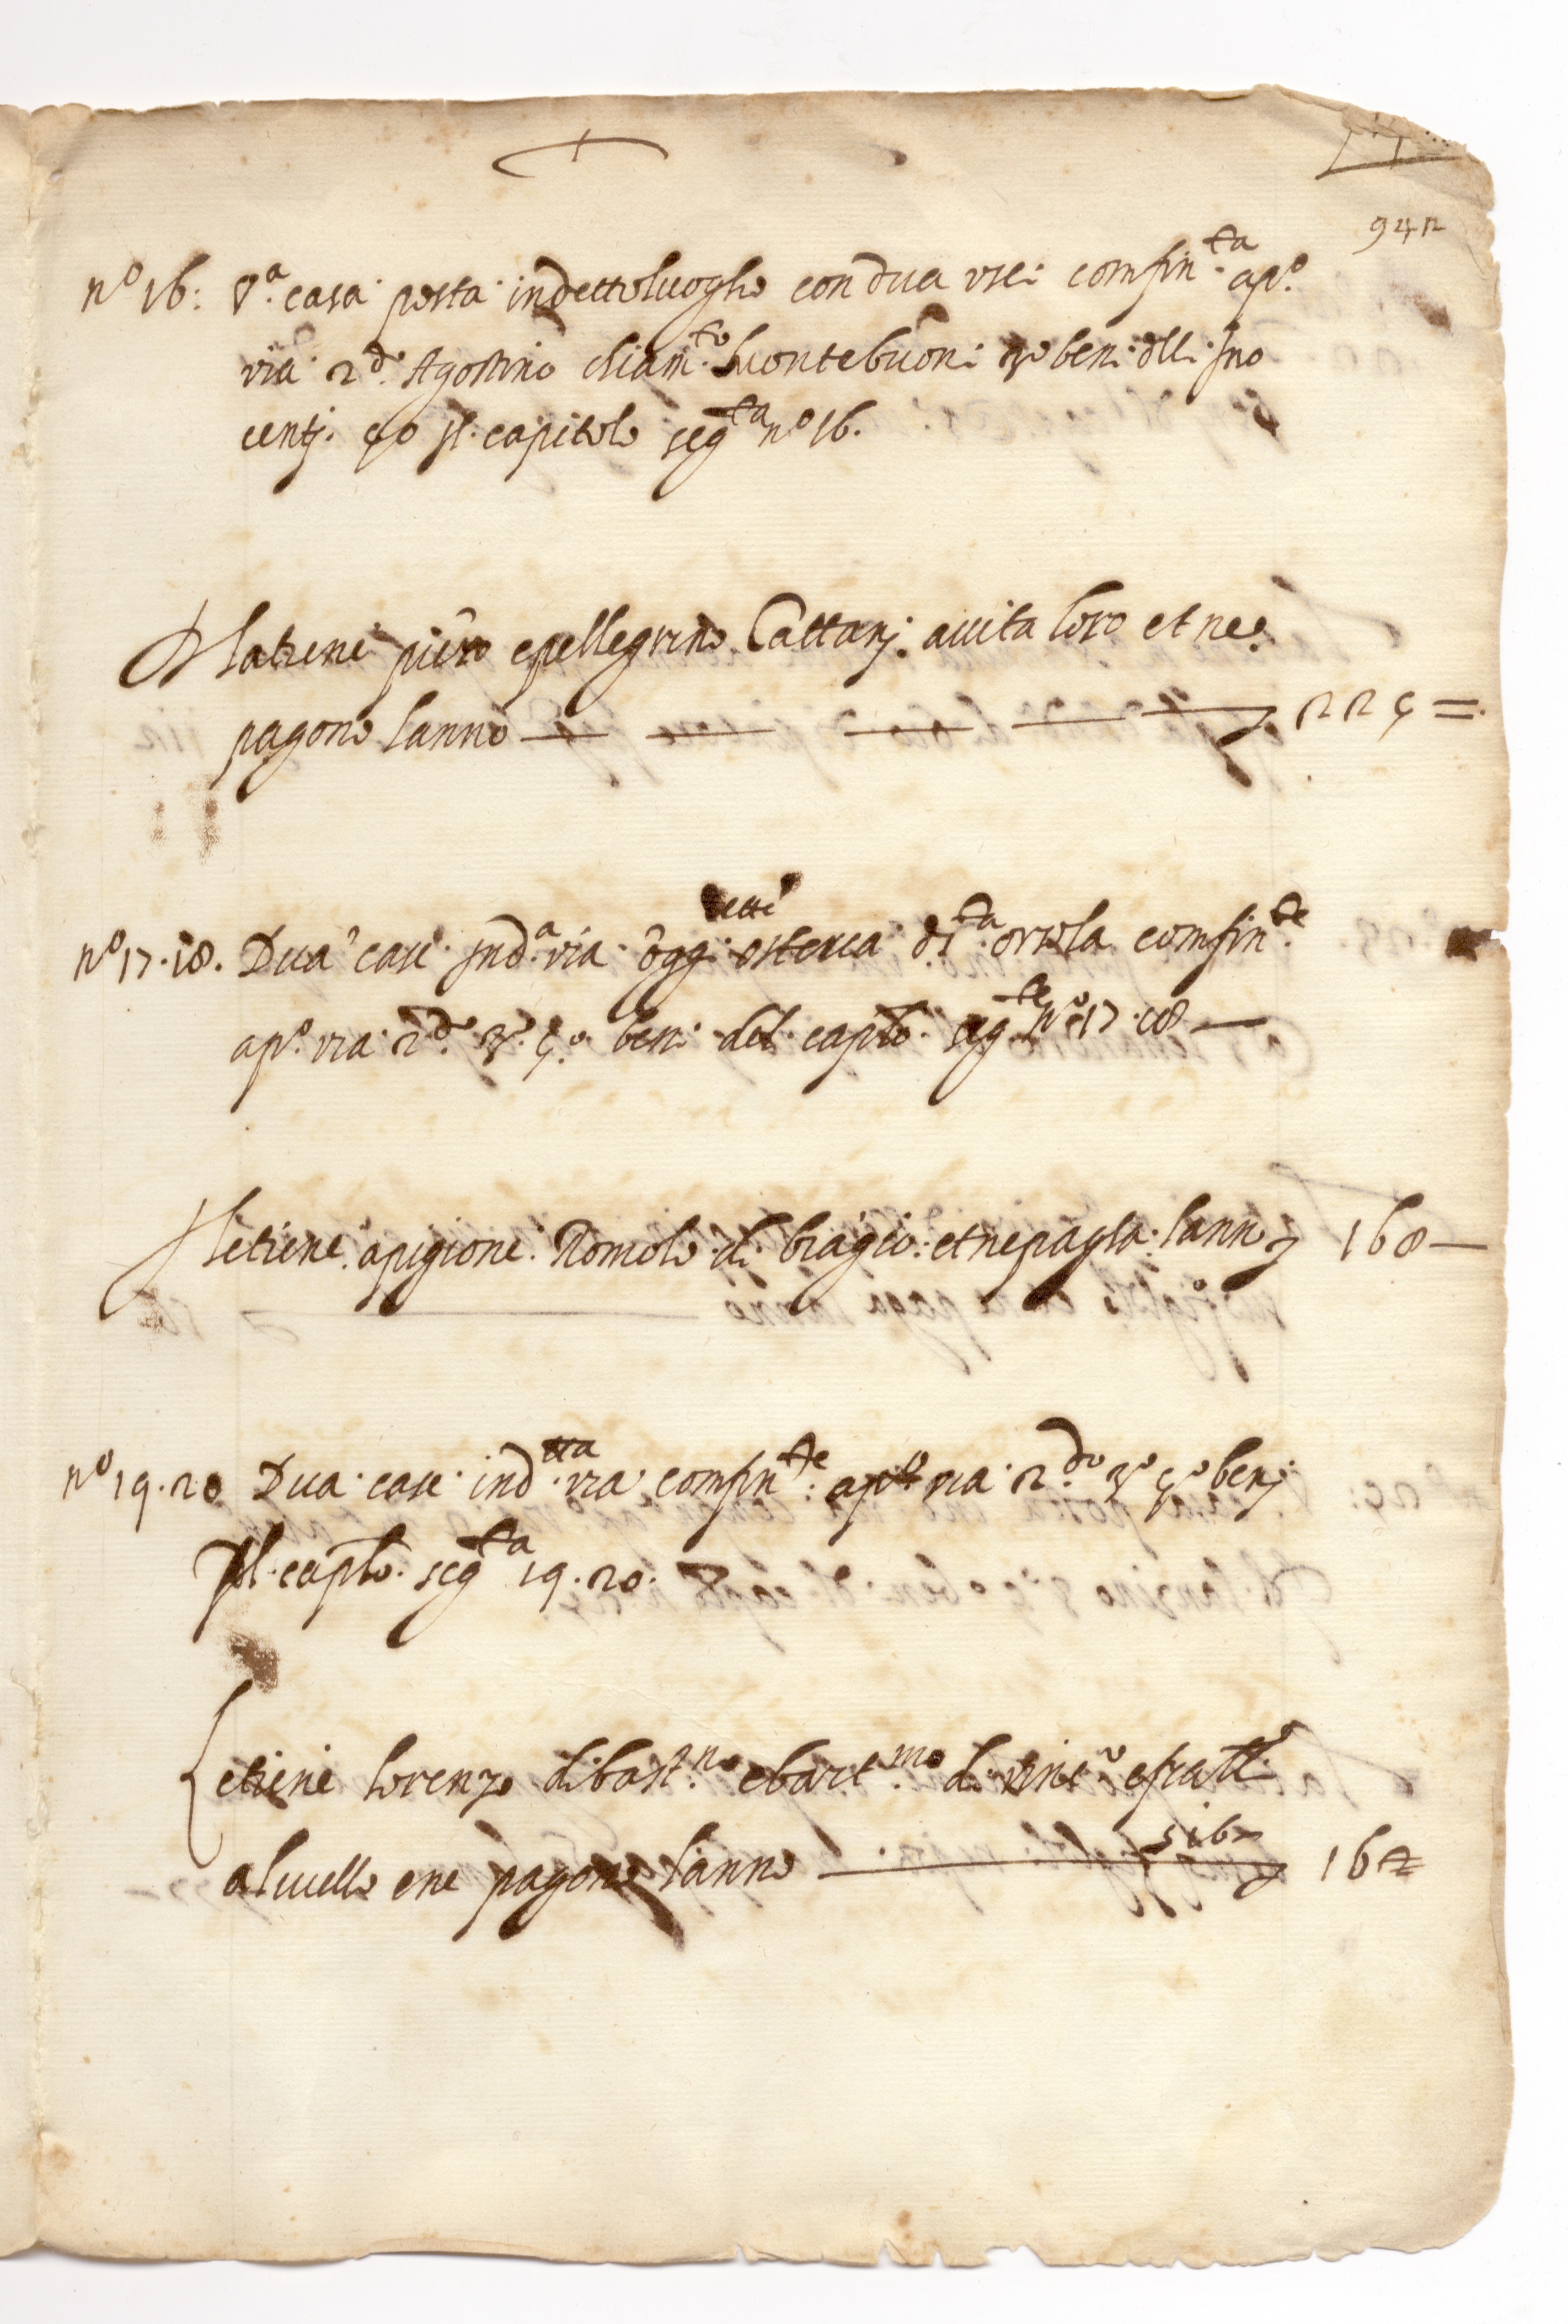 942
nº 16: Vª. casa posta indettoluogho con dua usci confin.ta apº.
via 2dº. Agostino chiam.to buontebuoni 3º beni dlli Jno
centj. 4º Jl capitolo segta nº 16.
Latiene piero epellegrino Cattanj. avita loro et ne
pagono lanno 224 =.
nº 17.18. Dua case Jndª. via oggi detta osteria di sta. orsola confin.te
apº. via 2dº. 3º. 4º. beni del caplo. segte nº 17.18 —
Letiene apigione Romolo di biagio: etnepagha lanno 168 —
nº 19.20 Dua case indtta. via confin.te apº via 2do. 3º 4º benj
Jl caplo. segta 19.20.
Letiene lorenzo dibast.no ebart.mo di vinco efratlli
alivello ene pagono lanno 162